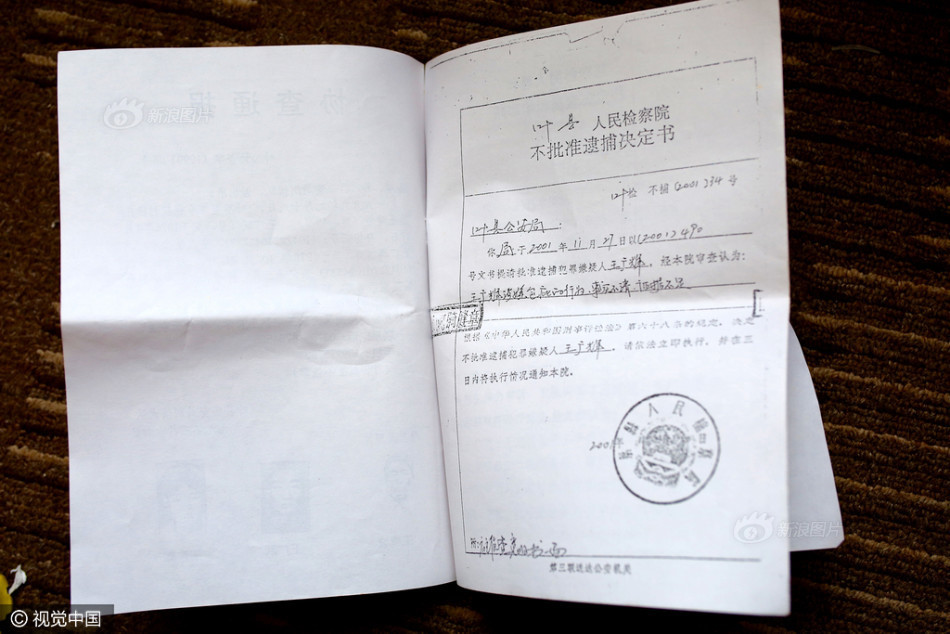 协查通报
新浪图片
叶县 人民检察院
不批准逮捕决定书
叶检 不捕(2001)234号
叶县公安局:
你局于2001年11月27日以(2001)490
号文书提请批准逮捕犯罪嫌疑人王广辉,经本院审查认为:
王广辉 行为,事实不清 证据不足
根据《中华人民共和国刑事诉讼法》第六十八条的规定,决定
不批准逮捕犯罪嫌疑人王广辉。请依法立即执行,并在三
日内将执行情况通知本院。
叶县人民检察院
200
附:
第三联送达公安机关
新浪图片
© 视觉中国